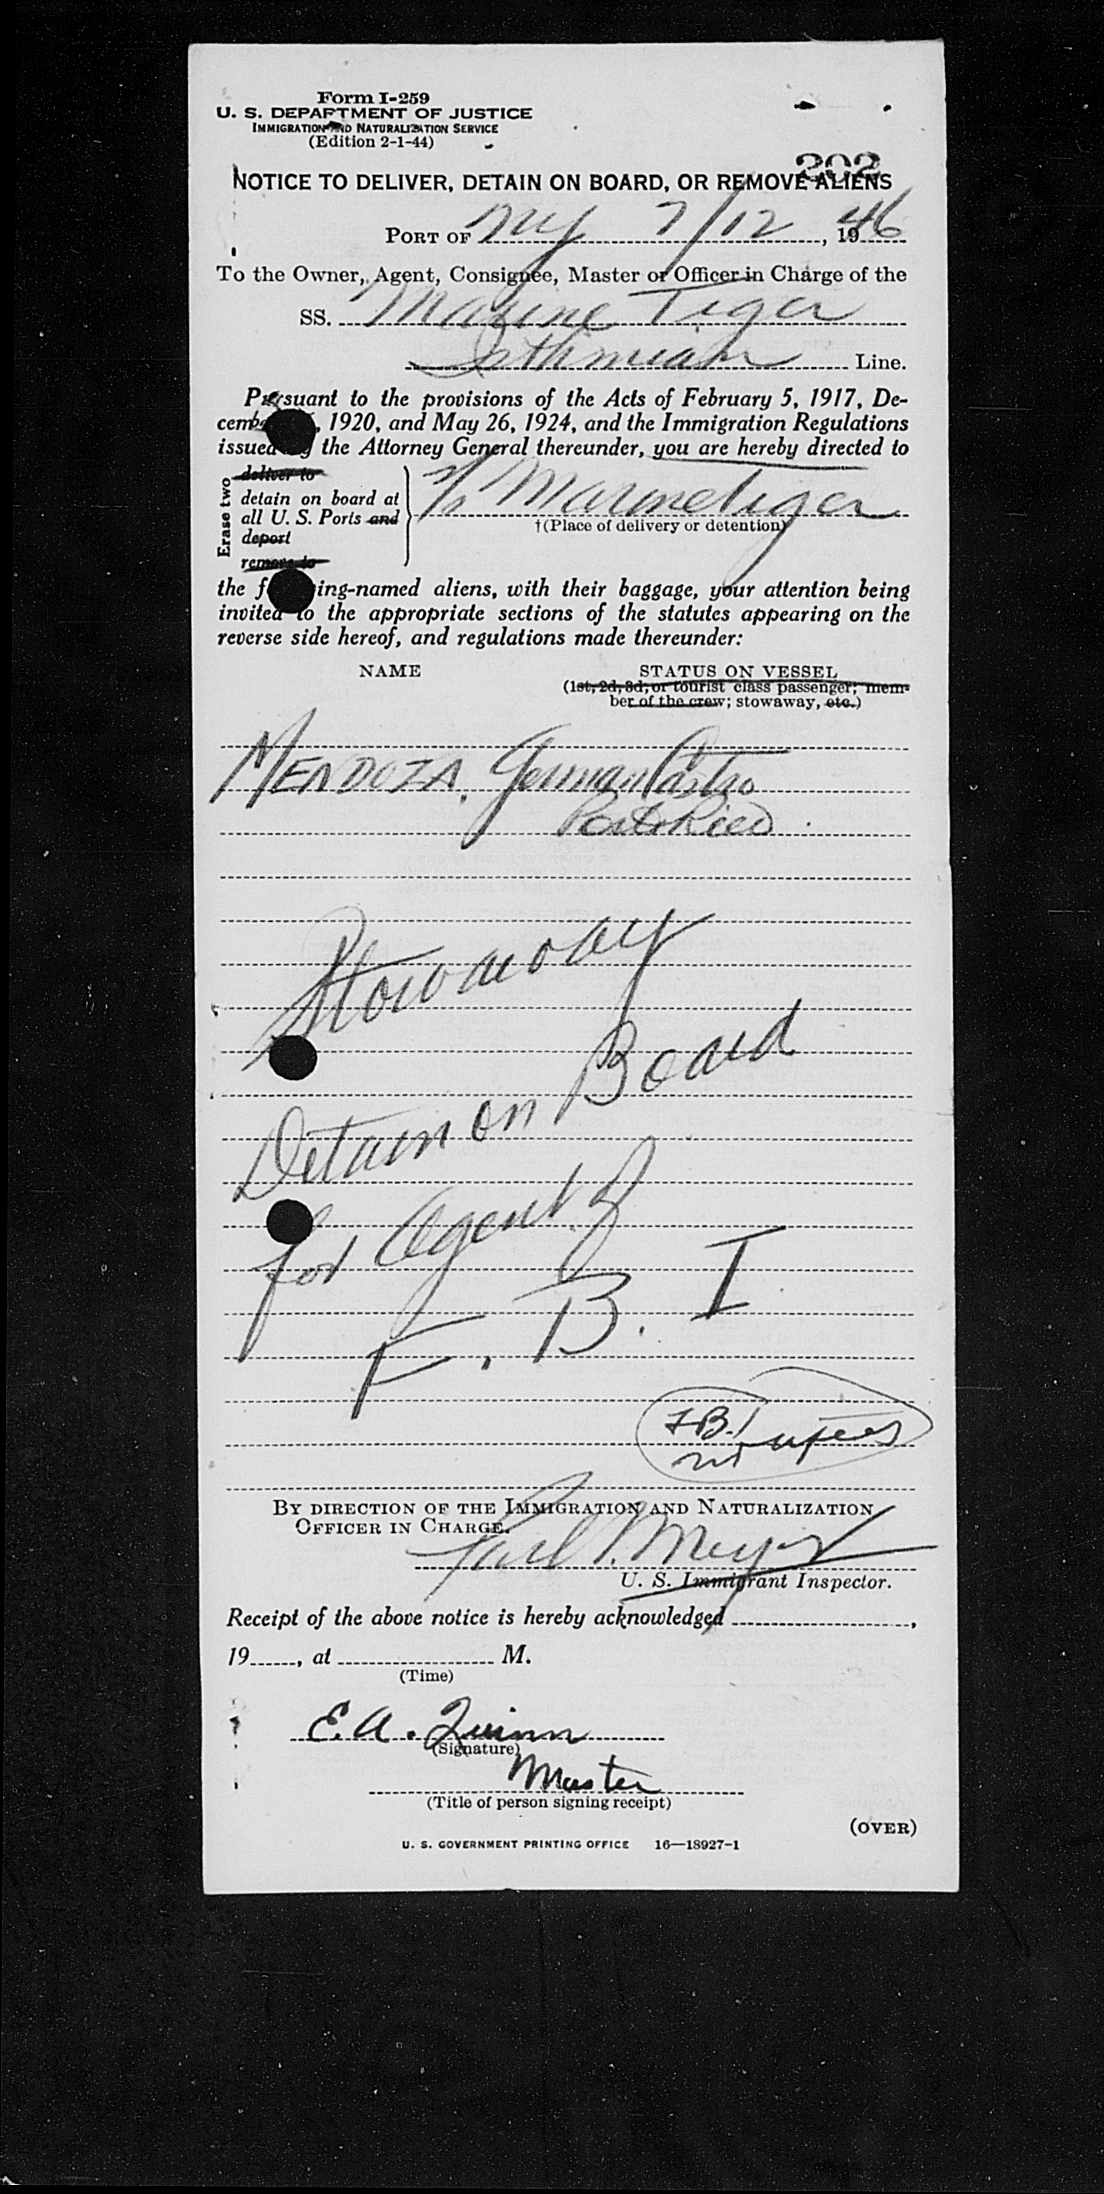 Form I-259
U. S. DEPARTMENT OF JUSTICE
IMMIGRATION AND NATURALIZATION SERVICE
(Edition 2-1-44)
302
NOTICE TO DELIVER, DETAIN ON BOARD, OR REMOVE ALIENS
PORT OF NY 7/12, 1946
To the Owner, Agent, Consignee, Master or Officer in Charge of the
SS. Marine Tiger
Isthmian Line.
Pursuant to the provisions of the Acts of February 5, 1917, De-
cember , 1920, and May 26, 1924, and the Immigration Regulations
issued by the Attorney General thereunder, you are hereby directed to
Erase two
deliver to
detain on board at
all U. S. Ports and
deport
remove to
S/S Marine Tiger
†(Place of delivery or detention)
the following-named aliens, with their baggage, your attention being
invited to the appropriate sections of the statutes appearing on the
reverse side hereof, and regulations made thereunder:
NAME STATUS ON VESSEL
(1st, 2d, 3d, or tourist class passenger; mem-
ber of the crew; stowaway, etc.)
MENDOZA, German Castro
Porto Rico
Stowaway
Detain on Board
for Agent of
F. B. I
F.B.I
BY DIRECTION OF THE IMMIGRATION AND NATURALIZATION
OFFICER IN CHARGE.
Meyer
U. S. Immigrant Inspector.
Receipt of the above notice is hereby acknowledged ,
19 , at M.
(Time)
E. A. Quinn
(Signature)
Master
(Title of person signing receipt)
(OVER)
U. S. GOVERNMENT PRINTING OFFICE 16—18927-1